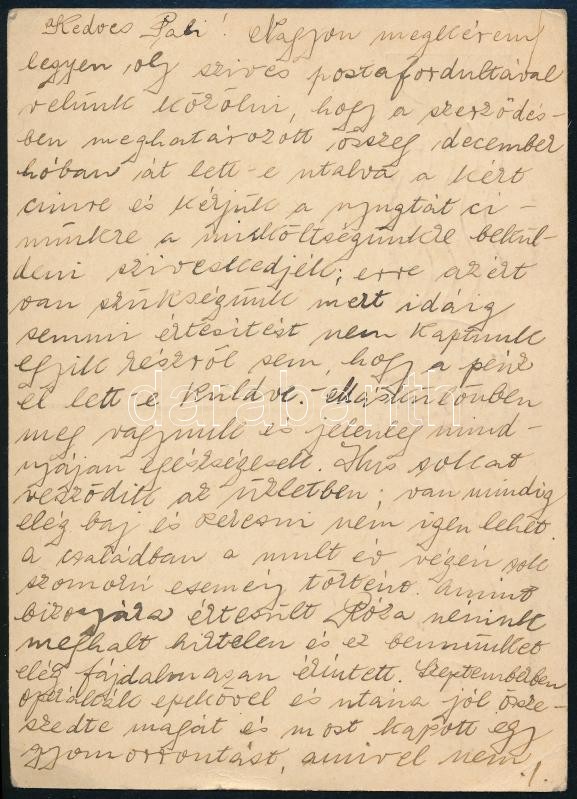 Kedves Pali! Nagyon megkérem
legyen oly szives postafordultával
velünk közölni, hogy a szerződés-
ben meghatározott összeg december
hóban át lett-e utalva a kért
cimre és kérjük a nyugtát ci-
münkre a mi költségünkre bekül-
deni sziveskedjék; erre azért
van szükségünk mert idáig
semmi értesitést nem kaptunk
egyik részről sem, hogy a pénz
el lett-e küldve. Máskülönben
meg vagyunk és jelenleg mind-
nyájan egészségesek. sokat
vesződik az üzletben; van mindig
elég baj és keresni nem igen lehet.
a családban a mult év végén sok
szomorú esemény történt. Amint
bizonyára értesült Róza nénink
meghalt hirtelen és ez bennünket
elég fájdalmasan érintett. Szeptemberben
operálták epekővel és utána jól össze-
szedte magát és most kapott egy
gyomorrontást, amivel nem
darabanth